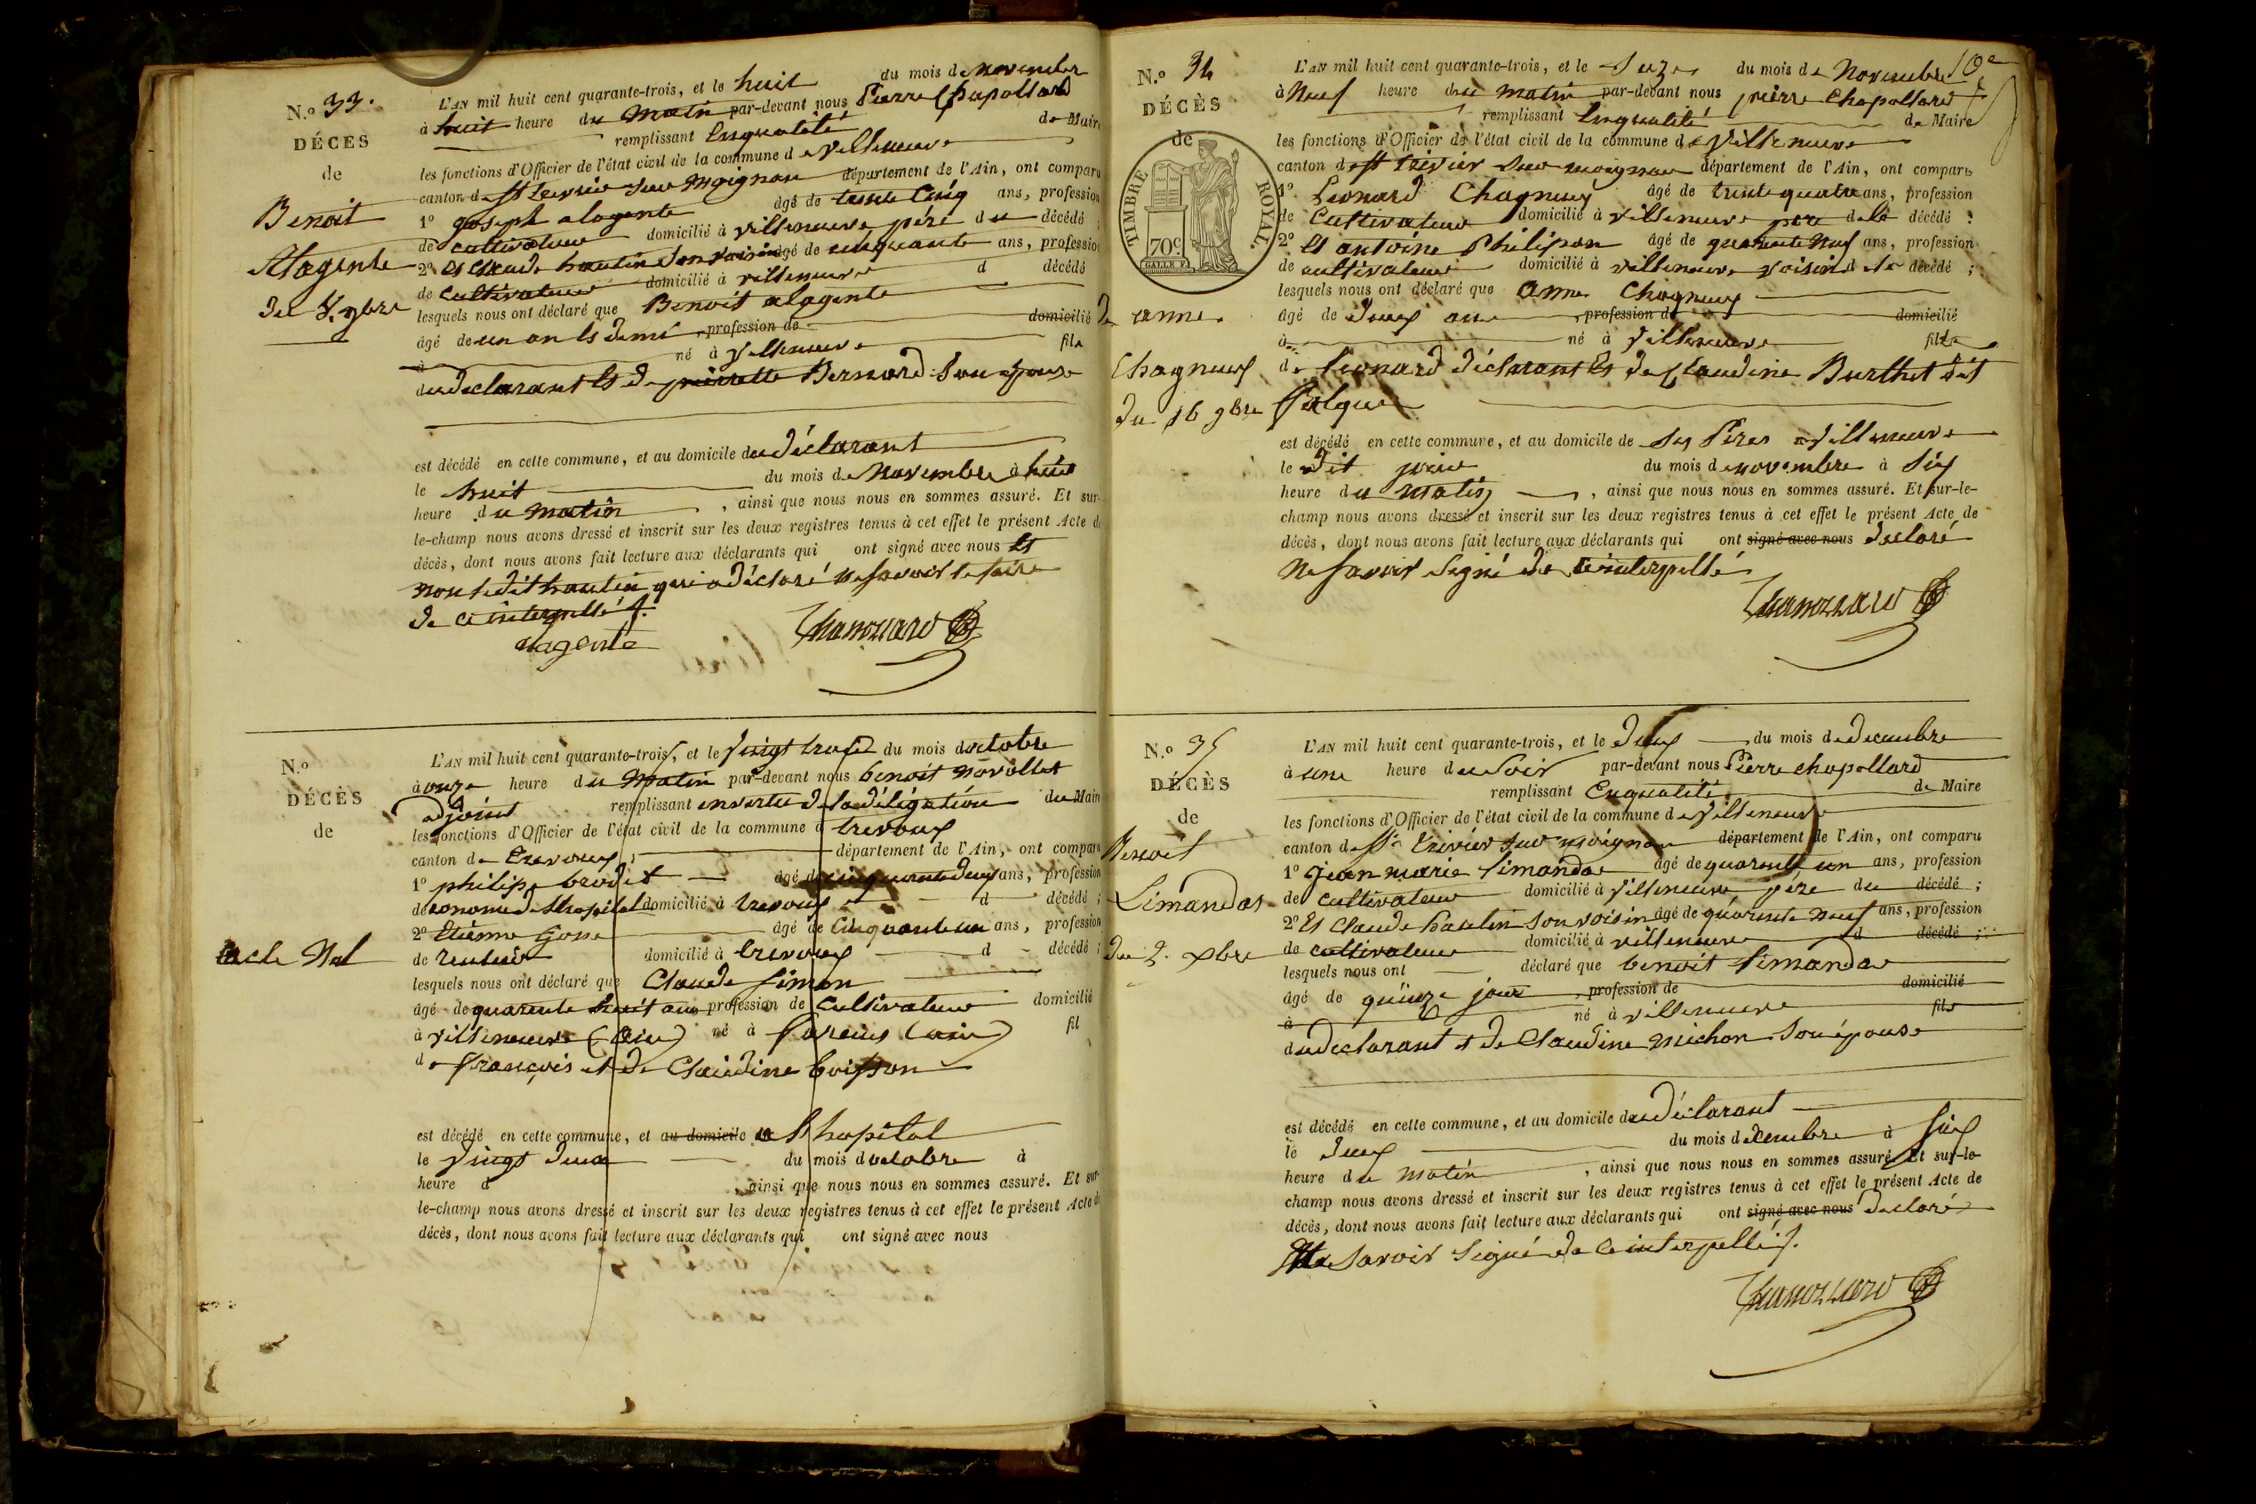 N.º 33.
DÉCES
de
Benoit
Alagente
du 8. 9bre
L'AN mil huit cent quarante-trois, et le huit du mois de Novembre
à huit heure du Matin par-devant nous Pierre Chapollard
remplissant En qualité de Maire
les fonctions d'Officier de l'état civil de la commune de Villeneuve
canton de St Trivier Sur Moignan département de l'Ain, ont comparu
1º Joseph alagente âgé de trente Cinq ans, profession
de cultivateur domicilié à Villeneuve père du décédé ;
2º et Claude hautin Son voisin âgé de cinquante ans, profession
de Cultivateur domicilié à villeneuve d décédé
lesquels nous ont déclaré que Benoit alagente
âgé de un an et demi , profession de domicilié
à né à Villeneuve fils
du declarant et de pierrette Bernard Son épouse
est décédé en cette commune, et au domicile du déclarant
le huit du mois de Novembre à huit
heure du matin , ainsi que nous nous en sommes assuré. Et sur-
le-champ nous avons dressé et inscrit sur les deux registres tenus à cet effet le présent Acte de
décès, dont nous avons fait lecture aux déclarants qui ont signé avec nous et
non ledit hautin qui a déclaré ne savoir le faire
de ce interpellé.
alagente Chapollard
N.º
DÉCÈS
de
acte Nul
L'AN mil huit cent quarante-trois, et le Vingt trois du mois doctobre
à onze heure du Matin par-devant nous benoit Novollet
adjoint remplissant en vertu de la déligation du Maire
les fonctions d'Officier de l'état civil de la commune d trevoux
canton de trevoux département de l'Ain, ont comparu
1º philipe brodet âgé de cinquante deux ans, profession
de conome de lhopital domicilié à trevoux d décédé ;
2º Etienne Gosse âgé de Cinquante un ans, profession
de rentier domicilié à trevoux d décédé ;
lesquels nous ont déclaré que Claude Simon
âgé de quarante huit ans profession de Cultivateur domicilié
à villeneuve (ain) né à Sareins (ain) fil
de françois et de Claudine boisson
est décédé en cette commune, et au domicile a Lhopital
le Vingt deux du mois doctobre à
heure d , ainsi que nous nous en sommes assuré. Et sur-
le-champ nous avons dressé et inscrit sur les deux registres tenus à cet effet le présent Acte de
décès, dont nous avons fait lecture aux déclarants qui ont signé avec nous
10e
N.º 34
DÉCÈS
de
TIMBRE ROYAL.
70c
de anne
Chagneux
du 16 9bre
L'AN mil huit cent quarante-trois, et le Seize du mois de Novembre
à Neuf heure du matin par-devant nous pierre Chapollard
remplissant En qualité de Maire
les fonctions d'Officier de l'état civil de la commune de Villeneuve
canton de St trivier Sur moignan département de l'Ain, ont comparu
1º Leonard Chagneux âgé de trente quatre ans, profession
de Cultivateur domicilié à villeneuve père de la décédé ;
2º Et antoine Philipon âgé de quarante Neuf ans, profession
de cultivateur domicilié à villeneuve voisin de la décédé ;
lesquels nous ont déclaré que anne Chagneux
âgé de deux ans , profession de domicilié
à né à Villeneuve fille
de Leonard déclarant Et de Claudine Burthet dit
falque
est décédé en cette commune, et au domicile de Ses Pères a Villeneuve
le dit jour du mois de novembre à Six
heure du matin , ainsi que nous nous en sommes assuré. Et sur-le-
champ nous avons dressé et inscrit sur les deux registres tenus à cet effet le présent Acte de
décès, dont nous avons fait lecture aux déclarants qui ont signé avec nous declaré
Ne savoir Signé de ce interpellé
Chapollard
N.º 35
DÉCÈS
de
Benoit
Limandas
du 2. Xbre
L'AN mil huit cent quarante-trois, et le deux du mois de decembre
à une heure du Soir par-devant nous Pierre chapollard
remplissant En qualité de Maire
les fonctions d'Officier de l'état civil de la commune de Villeneuve
canton de St Trivier Sur moignan département de l'Ain, ont comparu
1º jean marie limandas âgé de quarante un ans, profession
de cultivateur domicilié à villeneuve père du décédé ;
2º Et Claude hautin Son voisin âgé de quarante neuf ans, profession
de cultivateur domicilié à villeneuve d décédé ;
lesquels nous ont déclaré que benoit limandas
âgé de quinze jour , profession de domicilié
à né à villeneuve fils
du declarant et de Claudine Michon Son épouse
est décédé en cette commune, et au domicile du déclarant
le deux du mois decembre à Six
heure du matin , ainsi que nous nous en sommes assuré. Et sur-le-
champ nous avons dressé et inscrit sur les deux registres tenus à cet effet le présent Acte de
décès, dont nous avons fait lecture aux déclarants qui ont signé avec nous declaré
Ne Savoir Signé de ce interpellé.
Chapollard